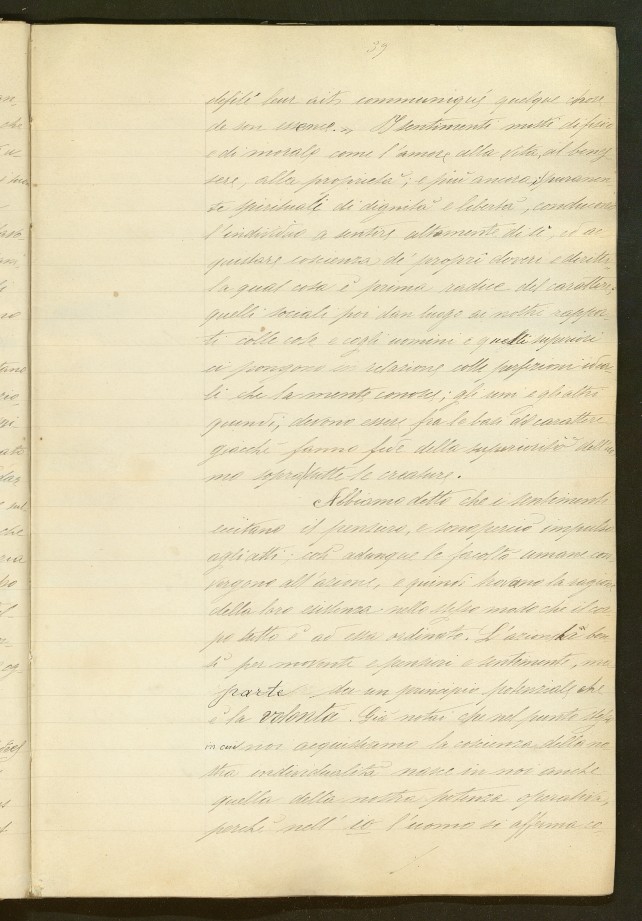 39
leur communiqué quelque chose
de son essence. „ I sentimenti misti di fisico
e di morale come l'amore alla vita, al benes
sere, alla proprietà; e più ancora i puramen
te spirituali di dignità e libertà, conducono
l'individuo a sentire altamente di sè, ed ac
quistare coscienza de' propri doveri e diritti
la qual cosa è prima radice del carattere;
quelli sociale poi dan luogo ai nostri rappor
ti colle cose e cogli uomini e quelli superiori
ci pongono in relazione colle perfezioni idea
li che la mente conosce; gli uni e gli altri
quindi, devono essere fra le basi del carattere
giacchè fanno fede della superiorità dell'uo
mo sopra tutte le creature.
Abbiamo detto che i sentimenti
eccitano il pensiero, e sono perciò impulso
agli atti; così adunque le facoltà umane con
vergono all'azione, e quindi trovano la ragione
della loro esistenza nello stesso modo che il cor
po tutto è ad essa ordinato. L'azione ha ben
sì per movente e pensieri e sentimenti, ma
parte da un principio potenziale che
è la volontà. Già notai che nel punto stesso
in cui noi acquistiamo la coscienza della no
stra individualità nasce in noi anche
quella della nostra potenza operativa,
perchè nell' io l'uomo si afferma co